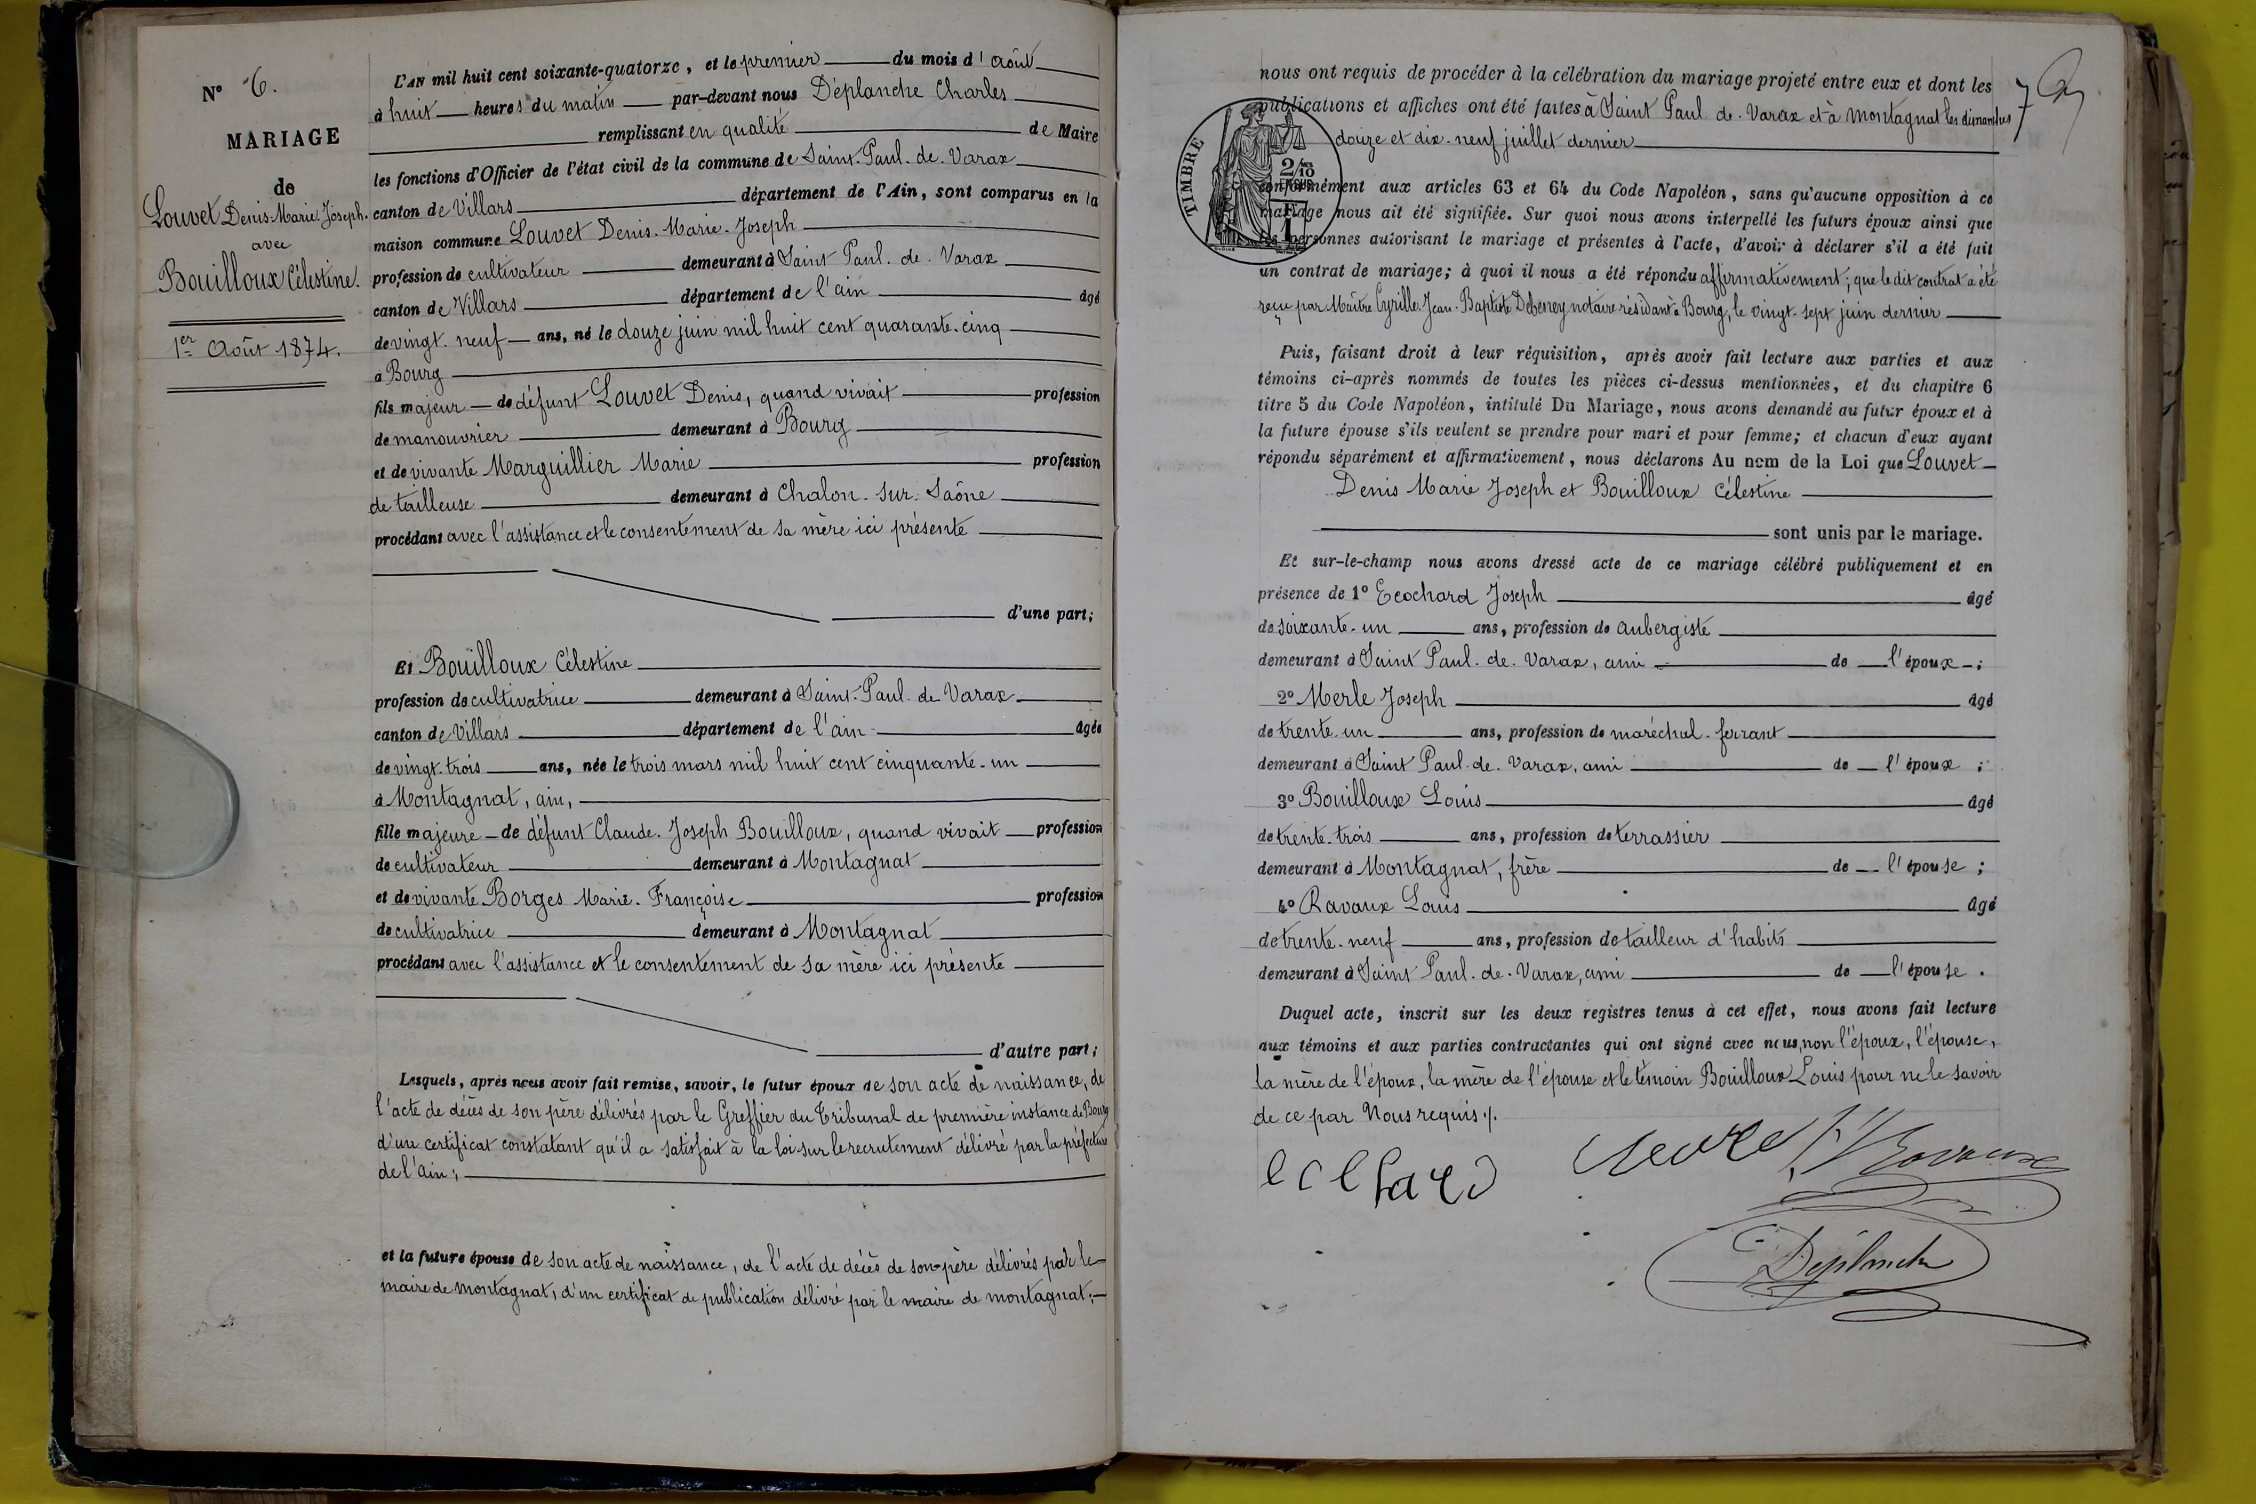 N° 6.
MARIAGE
de
Louvet Denis-Marie Joseph.
avec
Bouilloux Célestine.
1er Août 1874.
L'AN mil huit cent soixante-quatorze, et le premier du mois d'août
à huit heures du matin par-devant nous Déplanche Charles
remplissant en qualité de Maire
les fonctions d'Officier de l'état civil de la commune de Saint-Paul-de-Varax
canton de Villars département de l'Ain, sont comparus en la
maison commune Louvet Denis-Marie-Joseph
profession de cultivateur demeurant à Saint Paul-de-Varax
canton de Villars département de l'ain âgé
de vingt-neuf ans, né le douze juin mil huit cent quarante-cinq
à Bourg
fils majeur de défunt Louvet Denis, quand vivait profession
de manouvrier demeurant à Bourg
et de vivante Marguillier Marie profession
de tailleuse demeurant à Chalon-sur-Saône
procédant avec l'assistance et le consentement de sa mère ici présente
d'une part;
Et Bouilloux Célestine
profession de cultivatrice demeurant à Saint-Paul-de-Varax
canton de Villars département de l'ain âgée
de vingt-trois ans, née le trois mars mil huit cent cinquante-un
à Montagnat, ain,
fille majeure de défunt Claude-Joseph Bouilloux, quand vivait profession
de cultivateur demeurant à Montagnat
et de vivante Borges Marie-Françoise profession
de cultivatrice demeurant à Montagnat
procédant avec l'assistance et le consentement de sa mère ici présente
d'autre part;
Lesquels, après nous avoir fait remise, savoir, le futur époux de son acte de naissance, de
l'acte de décès de son père délivrés par le Greffier du Tribunal de première instance de Bourg
d'un certificat constatant qu'il a satisfait à la loi sur le recrutement délivré par la préfecture
de l'Ain;
et la future épouse de son acte de naissance, de l'acte de décès de son père délivrés par le
maire de montagnat, d'un certificat de publication délivré par le maire de montagnat;
nous ont requis de procéder à la célébration du mariage projeté entre eux et dont les
publications et affiches ont été faites à Saint Paul-de-Varax et à Montagnat les dimanches
douze et dix-neuf juillet dernier
TIMBRE
conformément aux articles 63 et 64 du Code Napoléon, sans qu'aucune opposition à ce
mariage nous ait été signifiée. Sur quoi nous avons interpellé les futurs époux ainsi que
les personnes autorisant le mariage et présentes à l'acte, d'avoir à déclarer s'il a été fait
un contrat de mariage; à quoi il nous a été répondu affirmativement; que le dit contrat a été
reçu par Maître Cyrille-Jean-Baptiste Debeney notaire résidant à Bourg, le vingt-sept juin dernier
Puis, faisant droit à leur réquisition, après avoir fait lecture aux parties et aux
témoins ci-après nommés de toutes les pièces ci-dessus mentionnées, et du chapitre 6
titre 5 du Code Napoléon, intitulé Du Mariage, nous avons demandé au futur époux et à
la future épouse s'ils veulent se prendre pour mari et pour femme; et chacun d'eux ayant
répondu séparément et affirmativement, nous déclarons Au nom de la Loi que Louvet
Denis Marie Joseph et Bouilloux Célestine
sont unis par le mariage.
Et sur-le-champ nous avons dressé acte de ce mariage célébré publiquement et en
présence de 1° Ecochard Joseph âgé
de soixante-un ans, profession de aubergiste
demeurant à Saint Paul-de-Varax, ami de l'époux;
2° Merle Joseph âgé
de trente-un ans, profession de maréchal-ferrant
demeurant à Saint Paul-de-Varax, ami de l'époux;
3° Bouilloux Louis âgé
de trente-trois ans, profession de terrassier
demeurant à Montagnat, frère de l'épouse;
4° Ravaux Louis âgé
de trente-neuf ans, profession de tailleur d'habits
demeurant à Saint Paul-de-Varax, ami de l'épouse.
Duquel acte, inscrit sur les deux registres tenus à cet effet, nous avons fait lecture
aux témoins et aux parties contractantes qui ont signé avec nous, non l'époux, l'épouse,
la mère de l'époux, la mère de l'épouse et le témoin Bouilloux Louis pour ne le savoir
de ce par Nous requis ./.
Ravaux
Déplanche